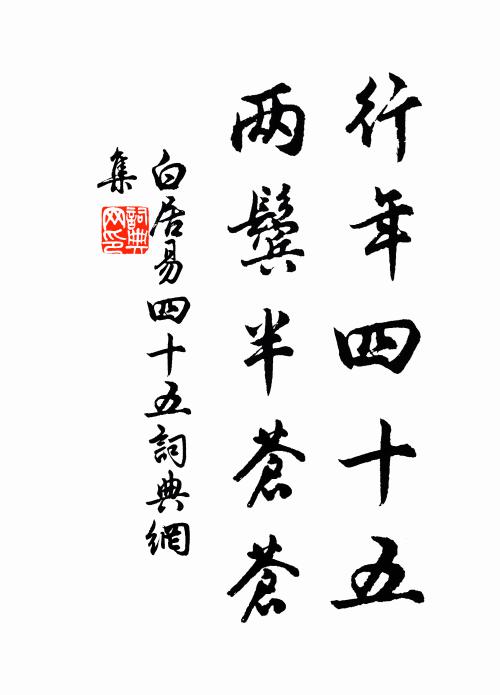 行年四十五
两鬓半蒼蒼
白居易四十五詞典網
集
詞典
网印